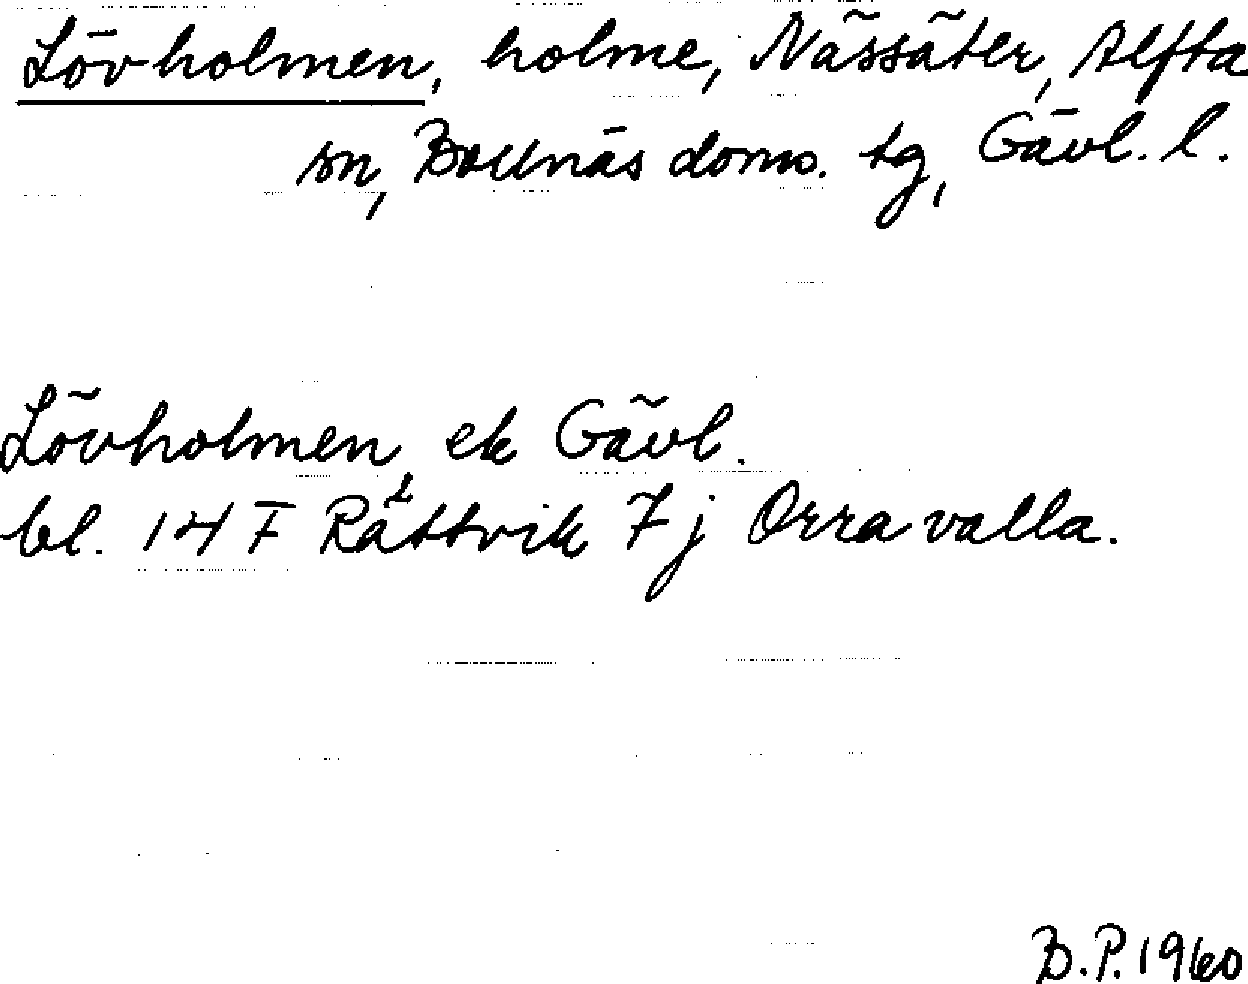 Lövholmen, holme, Nässäter, Alfta
sn, Bollnäs doms. tg, Gävl. l.
Lövholmen, ek Gävl.
bl. 14 F Rättvik 7 j Orravalla.
B.P. 1960